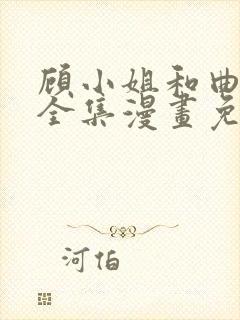 顾小姐和曲
全集漫畫免
河伯